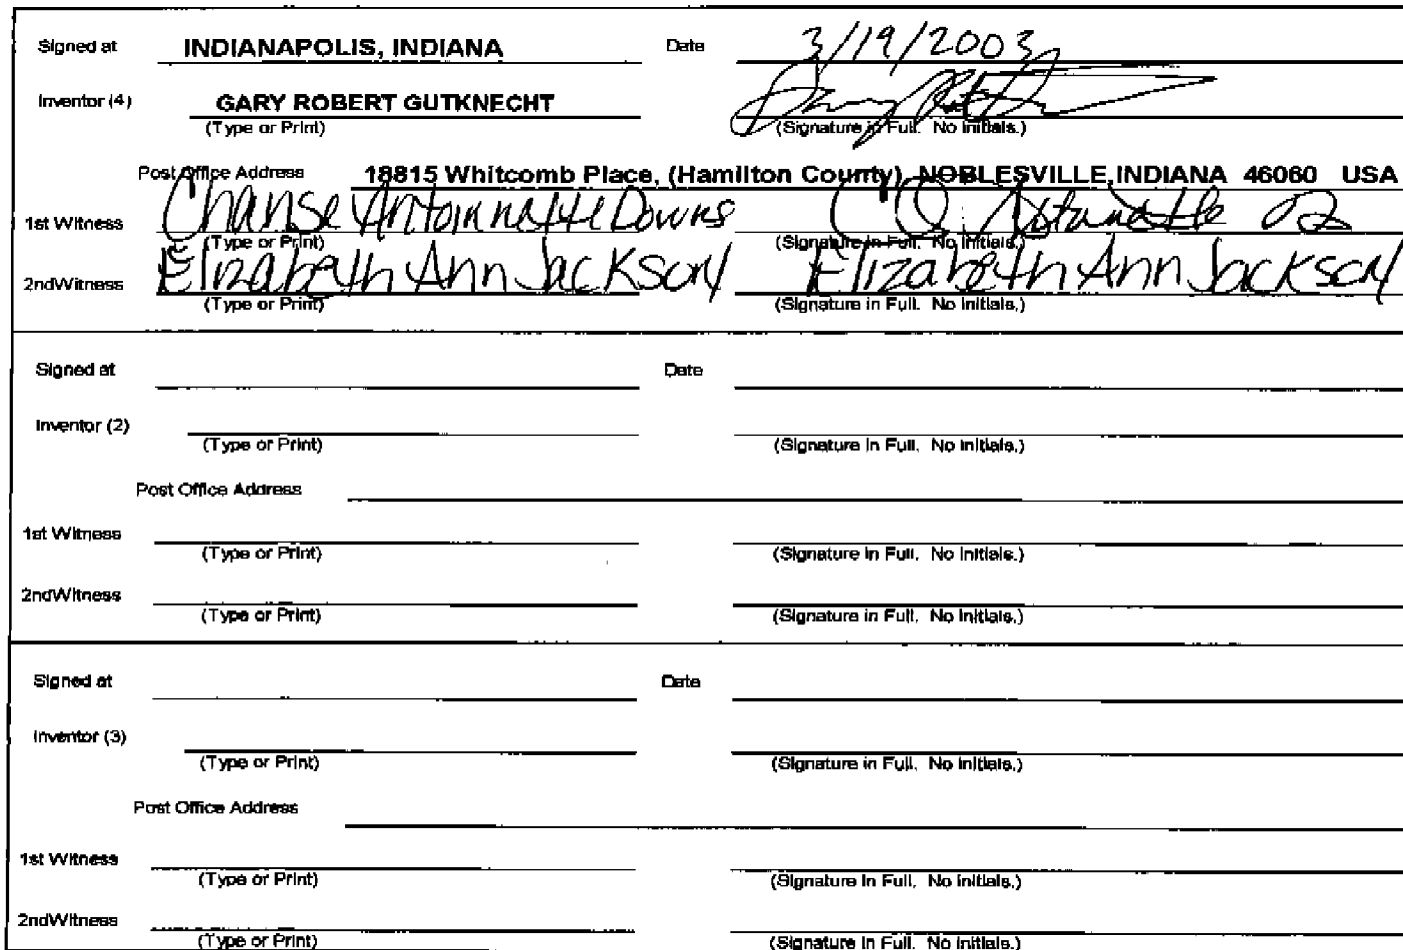 Signed at INDIANAPOLIS, INDIANA Date 3/19/2003
Inventor (4) GARY ROBERT GUTKNECHT
(Type or Print) (Signature in Full. No Initials.)
Post Office Address 18815 Whitcomb Place, (Hamilton County), NOBLESVILLE, INDIANA 46060 USA
1st Witness Chanse Downs
(Type or Print) (Signature in Full. No Initials.)
2ndWitness Elizabeth Ann Jackson Elizabeth Ann Jackson
(Type or Print) (Signature in Full. No Initials.)
Signed at Date
Inventor (2)
(Type or Print) (Signature in Full. No Initials.)
Post Office Address
1st Witness
(Type or Print) (Signature in Full. No Initials.)
2ndWitness
(Type or Print) (Signature in Full. No Initials.)
Signed at Date
Inventor (3)
(Type or Print) (Signature in Full. No Initials.)
Post Office Address
1st Witness
(Type or Print) (Signature in Full. No Initials.)
2ndWitness
(Type or Print) (Signature in Full. No Initials.)